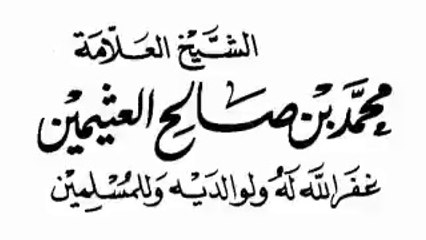 الشَّيْخ العَلَّامَة
مُحَمَّد بْن صَالِح العُثَيْمِيْن
غَفَرَ اللَّه لَهُ وَلِوَالدَيْه وَللمُسْلِمِيْن